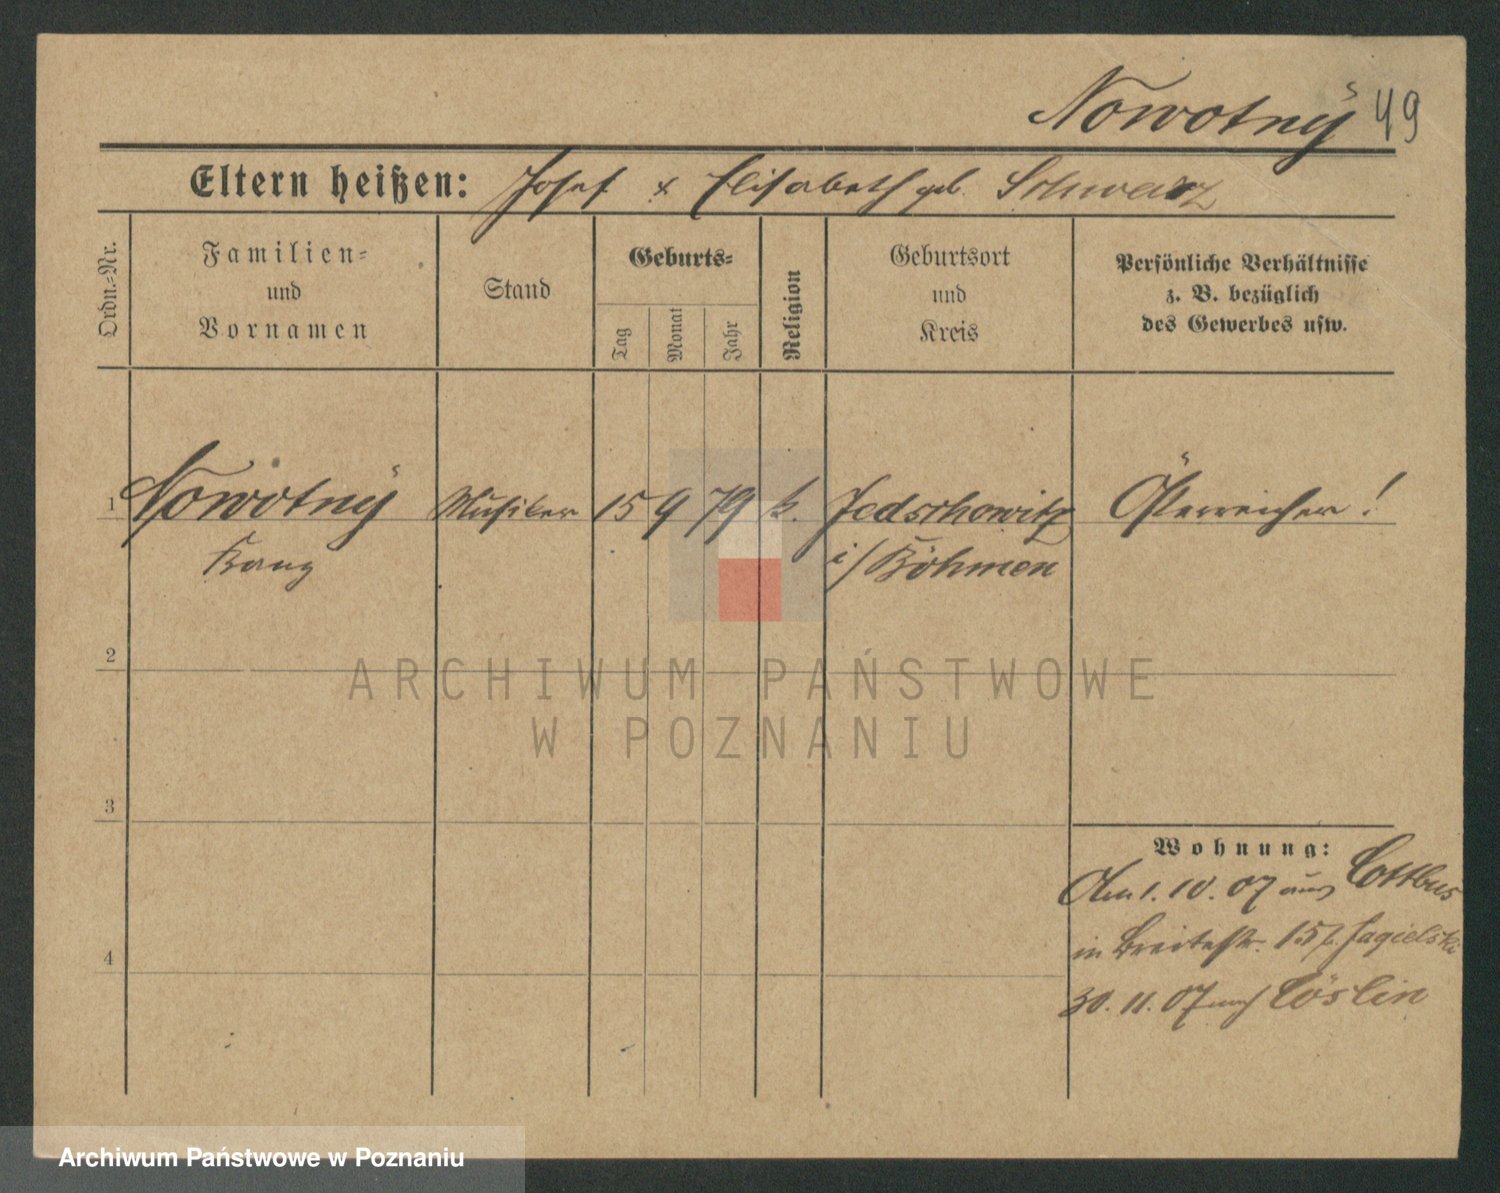 Nowotny 49
Eltern heißen: Josef & Elisabeth geb. Schwarz
Ordn.-Nr.
Familien-
und
Vornamen
Stand
Geburts-
Tag
Monat
Jahr
Religion
Geburtsort
und
Kreis
Persönliche Verhältnisse
z. B. bezüglich
des Gewerbes usw.
1 Nowotny Musiker 15 9 79 k. Jedschowitz Österreicher!
Franz i/Böhmen
2
ARCHIWUM PAŃSTWOWE
W POZNANIU
3
Wohnung:
Am 1. 10. 07 aus Cottbus
in Breitestr. 15 b. Jagielski
30. 11. 07 nach Cöslin
4
Archiwum Państwowe w Poznaniu